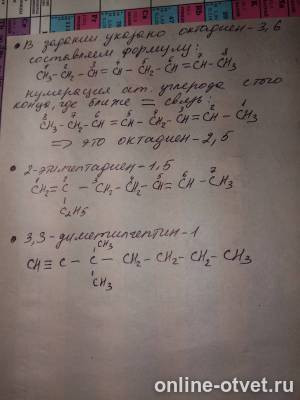 • В задании указано октадиен-3,6
составляем формулу:
1 2 3 4 5 6 7 8
CH3-CH2-CH=CH-CH2-CH=CH-CH3
нумерация ат. углерода с того
конца, где ближе = связь:
8 7 6 5 4 3 2 1
CH3-CH2-CH=CH-CH2-CH=CH-CH3
⇒ это октадиен-2,5
• 2-этилгептадиен-1,5
1 2 3 4 5 6 7
CH2=C-CH2-CH2-CH=CH-CH3
C2H5
• 3,3-диметилгептин-1
CH3
CH≡C-C-CH2-CH2-CH2-CH3
CH3
online-otvet.ru